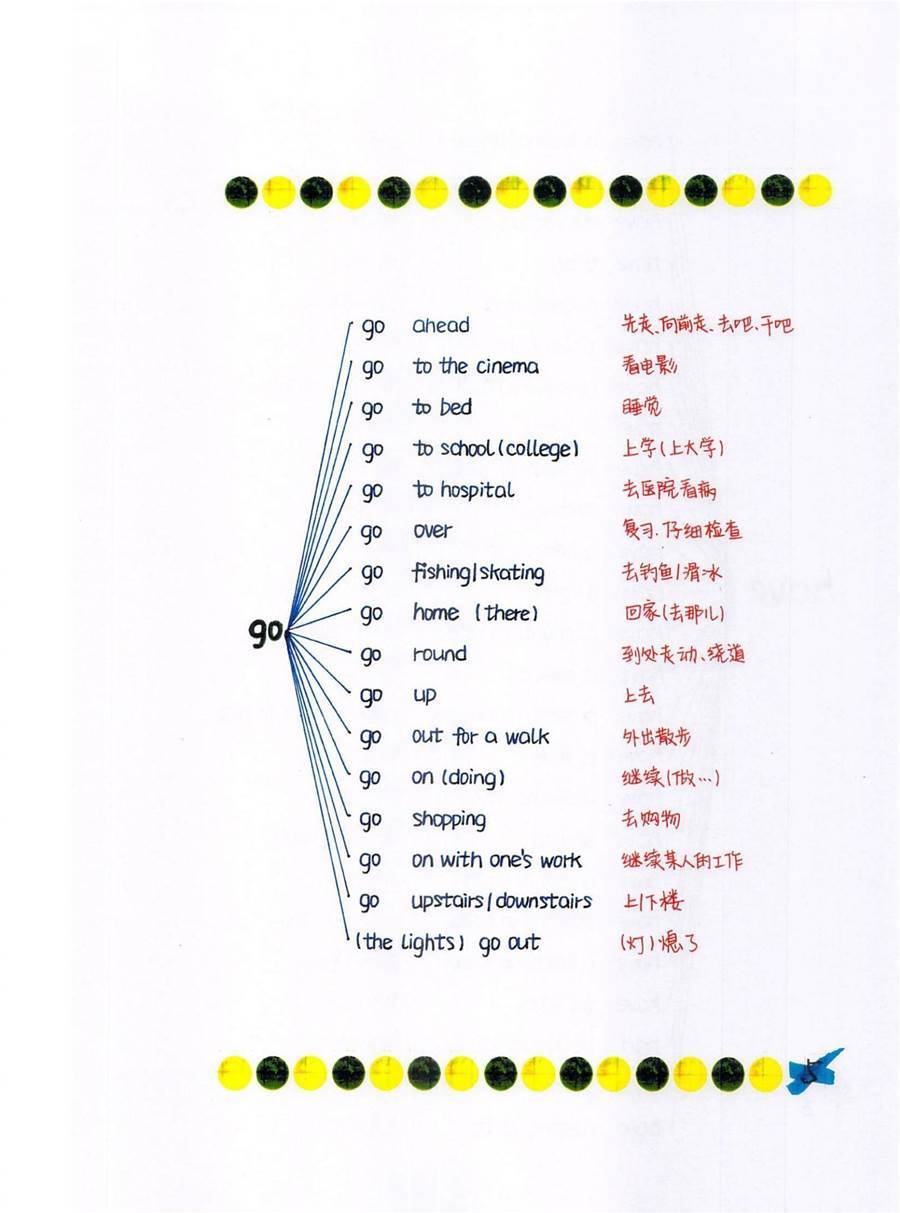 go ahead 先走、向前走、去吧、干吧
go to the cinema 看电影
go to bed 睡觉
go to school (college) 上学(上大学)
go to hospital 去医院看病
go over 复习、仔细检查
go fishing/skating 去钓鱼/滑冰
go home (there) 回家(去那儿)
go
go round 到处走动、绕道
go up 上去
go out for a walk 外出散步
go on (doing) 继续(做…)
go shopping 去购物
go on with one's work 继续某人的工作
go upstairs/downstairs 上/下楼
(the lights) go out (灯)熄了
5